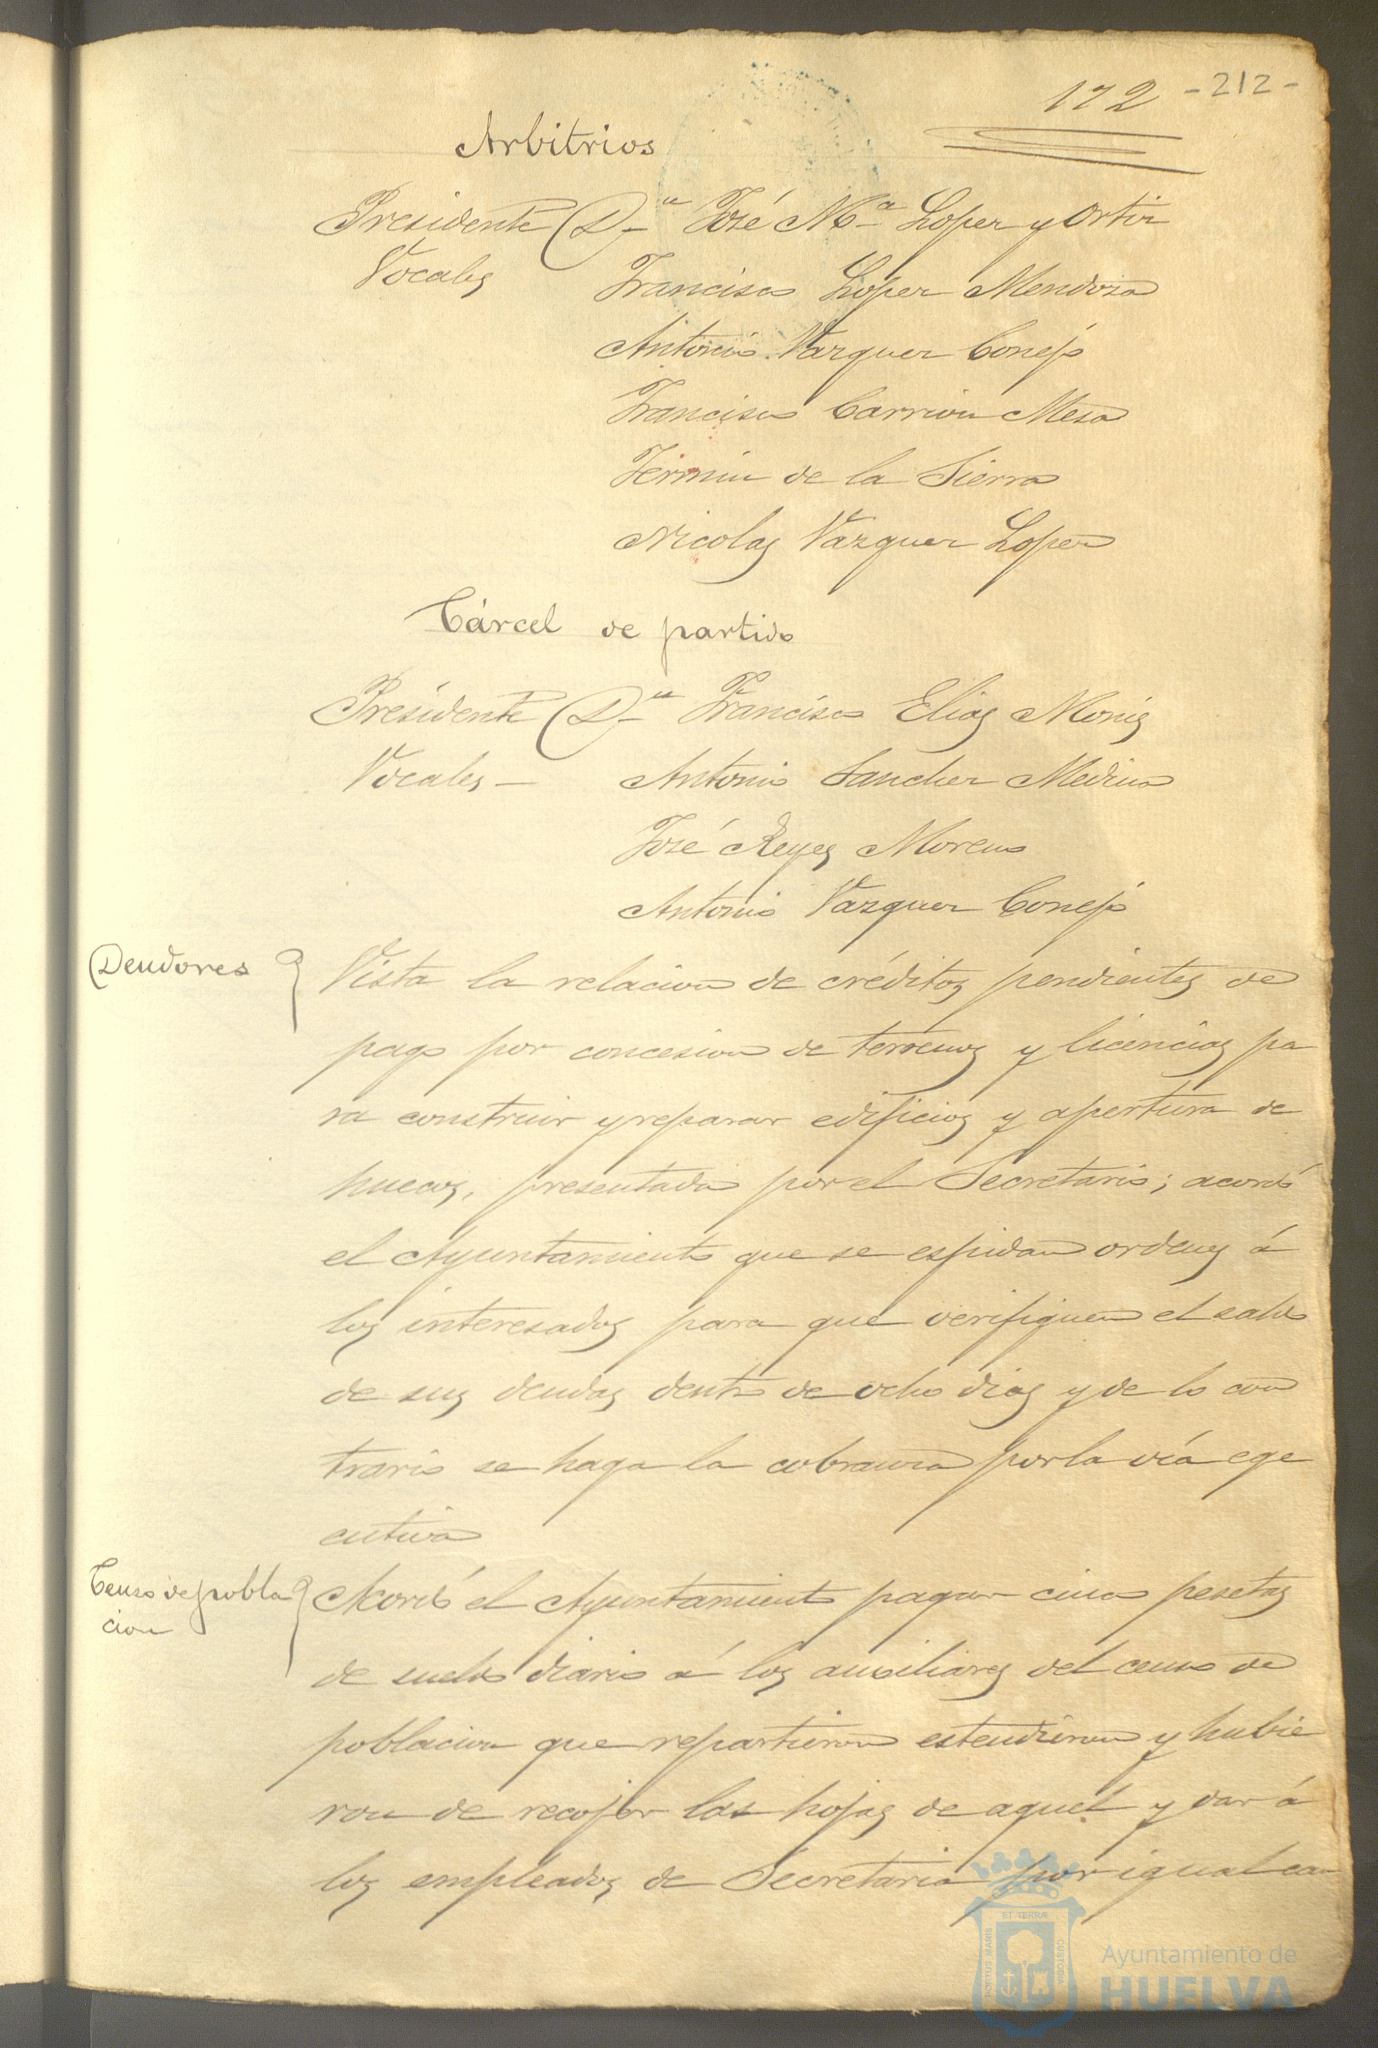 172 -212-
Arbitrios
Presidente Dn José Ma Lopez y Ortiz
Vocales Francisco Lopez Mendoza
Antonio Vazquez Conejo
Francisco Carrion Mesa
Fermin de la Sierra
Nicolas Vazquez Lopez
Cárcel de partido
Presidente Dn Francisco Elias Monis
Vocales - Antonio Sanchez Medina
José Reyes Moreno
Antonio Vazquez Conejo
Deudores
Vista la relacion de créditos pendientes de
pago por concesion de terrenos y licencias pa
ra construir y reparar edificios y apertura de
huecos, presentada por el Secretario; acordó
el Ayuntamiento que se espidan ordenes á
los interesados para que verifiquen el saldo
de sus deudas dentro de ocho dias y de lo con
trario se haga la cobranza por la vía ege
cutiva
Censo de pobla
cion
Acordó el Ayuntamiento pagar cinco pesetas
de sueldo diario á los auxiliares del censo de
poblacion que repartieron estendieron y hubie
ron de recojer las hojas de aquel y dar á
los empleados de Secretaria por igual can
ET TERRÆ
CUSTODIA
Ayuntamiento de
HUELVA